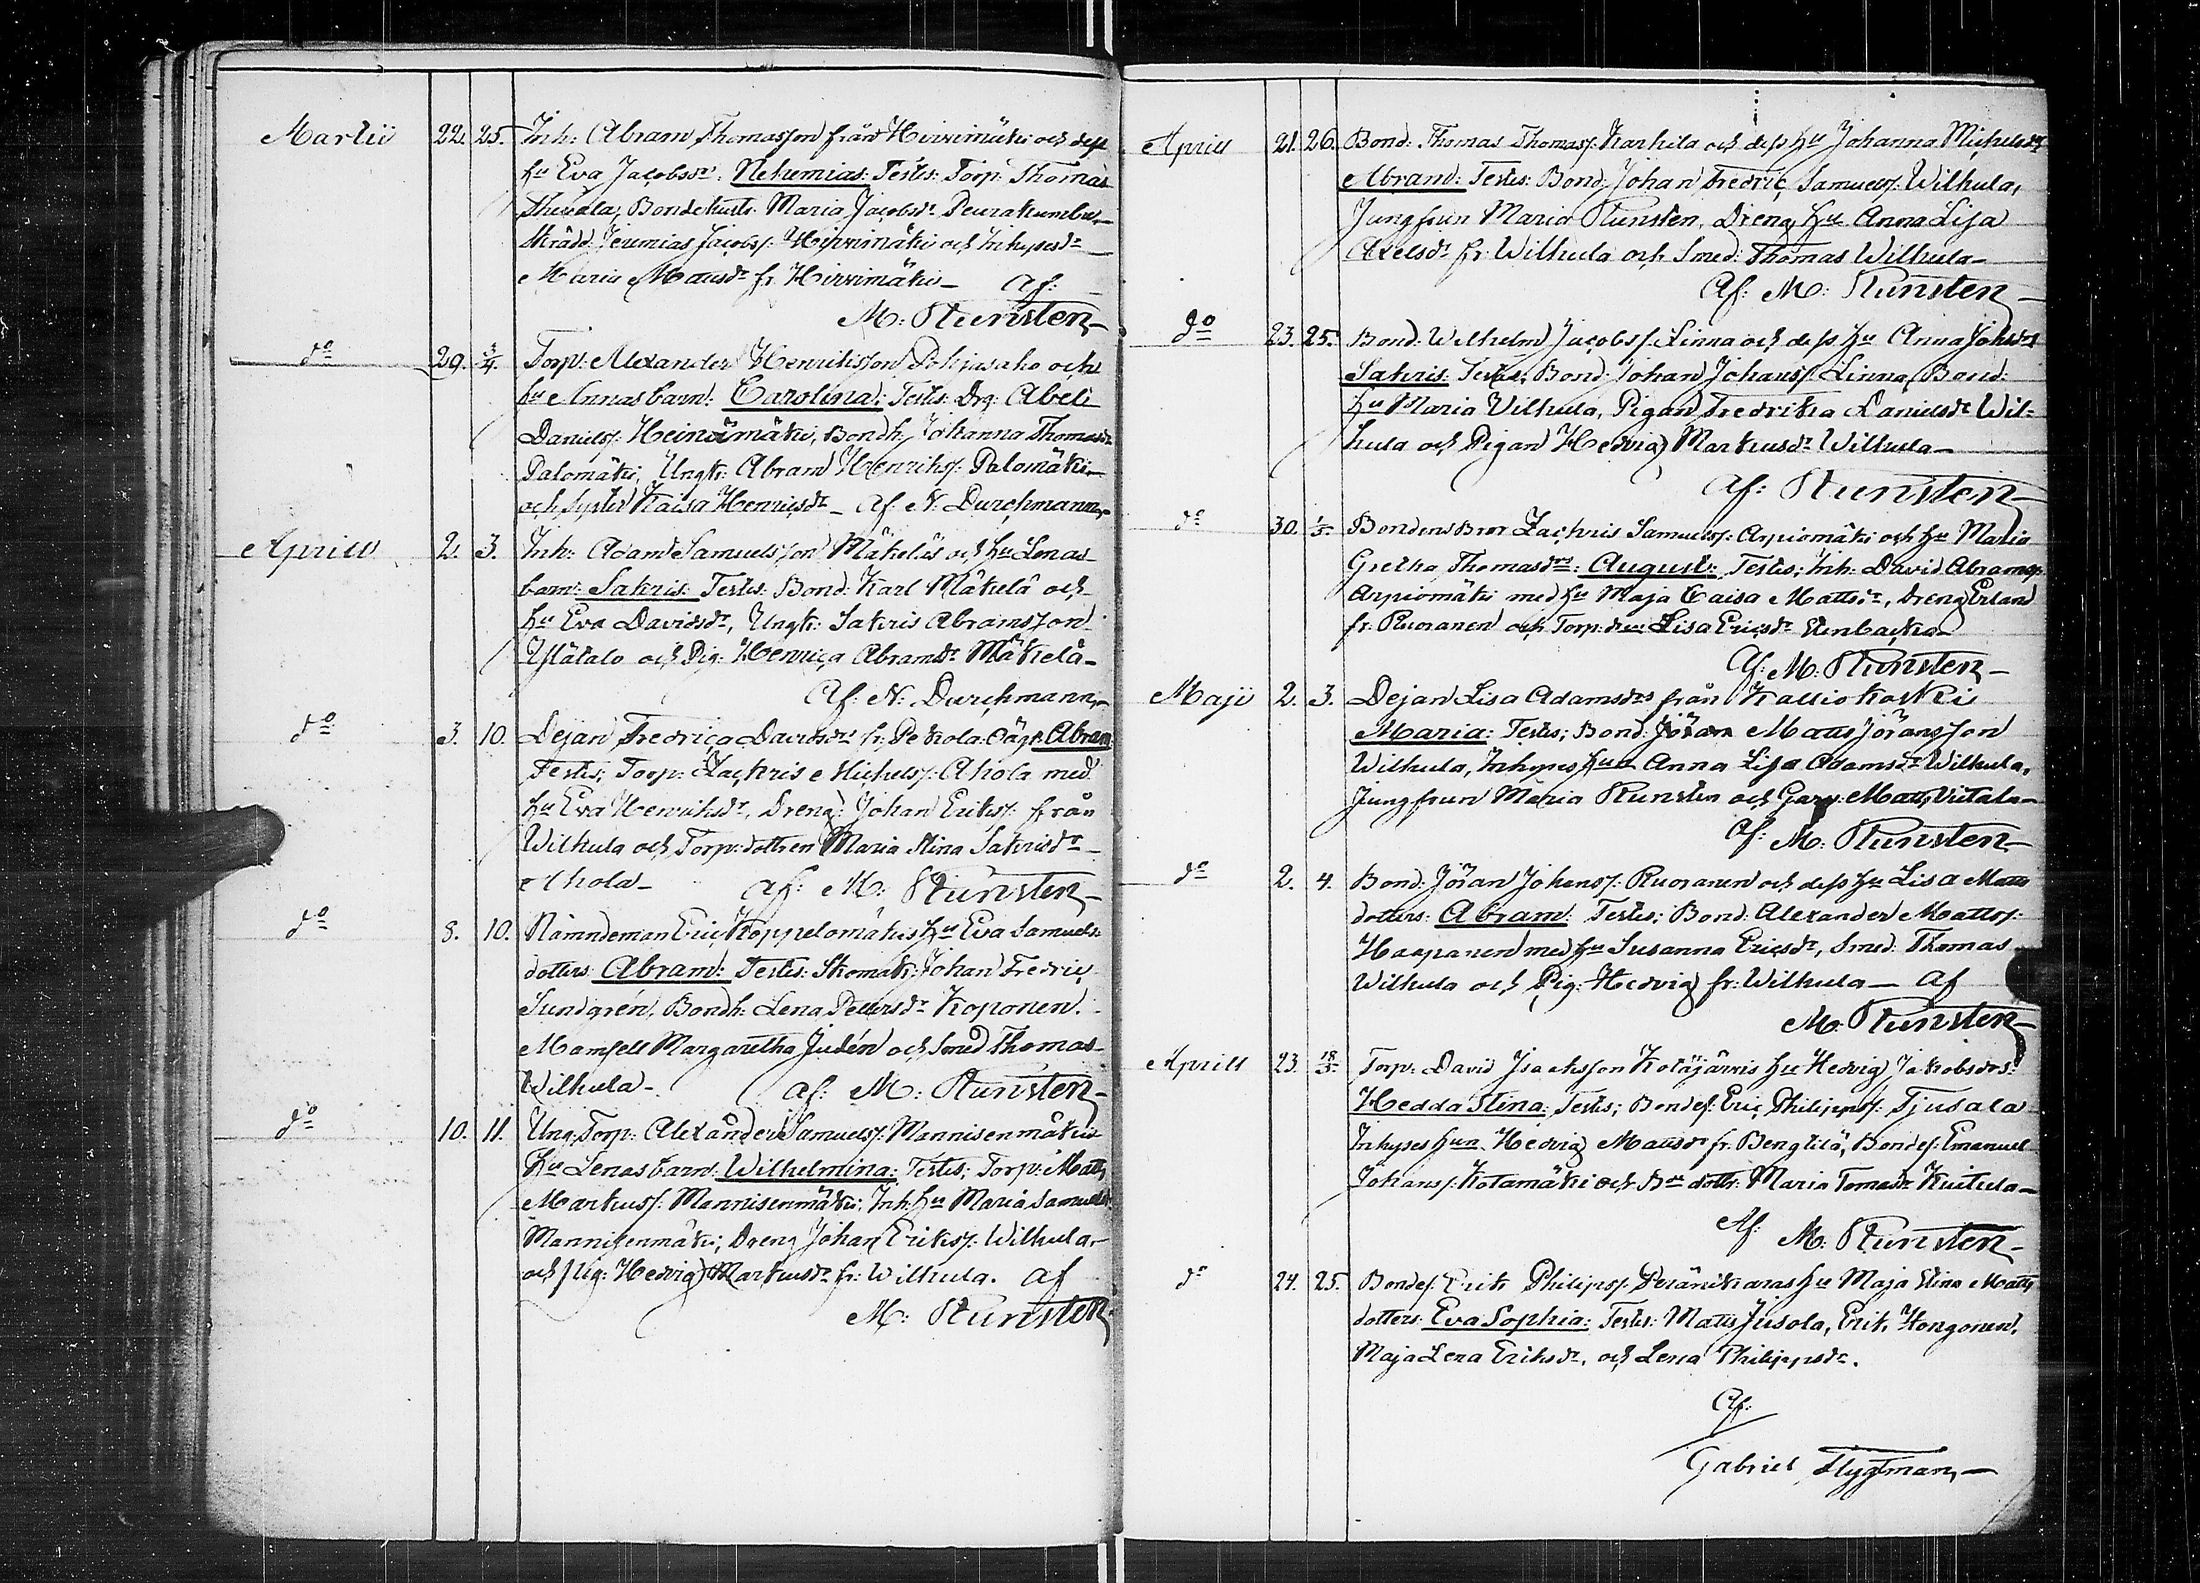 Martii 22. 25. Inh: Abram Thomasson från Hirvimäki och dess
hu Eva Jacobsdr: Nehemias: Testes: Torp: Thomas
Bondehustr. Maria Jacobsdr Peurakumbu,
Skrädd. Jeremias Jacobs/: Hirvimäki och Inhysesdr
Maria Mattsdr fr. Hirvimäki – Af:
M: Stunsten
do 29. 2/4. Torp: Alexander Henriksson Pohjasaho och
hu Annas barn: Carolina: Testes: Drg: Abel
Daniels/: Heinämäki, Bondh. Johanna Thomasdr
Palomäki, Ungk: Abram Henriks/: Palomäki
och syster Kaisa Henricsdr – Af N: Durchmann
Aprill 2. 3. Inh: Adam Samuelsson Mäkeläs och hu Lenas
barn: Sakris: Testes: Bond: Karl Mäkelä och
hu Eva Davidsdr, Ungk: Sakris Abramsson
Ylätalo och Pig: Henrica Abramsdr Mäkelä –
Af: N: Durchmann
do 3. 10. Dejan Fredrica Davidsdrs fr: Pekola: Oägt: Abram
Testes; Torp: Zachris Michels/: Ahola med
hu Eva Henriksdr, Dreng: Johan Eriks/: från
Wilhula och Torp: dottren Maria Stina Sakrisdr –
Ahola – af: M: Stunsten
do 8. 10. Nämndeman Eric Koppelomäkis hu Eva Samuels:
dotters: Abram: Testes: Skomak: Johan Fredric
Sundgrén, Bondh: Lena Pettersdr Koponen.
Mamsell Margaretha Judén och Smed Thomas
Wilhula – af: M: Stunsten
do 10. 11. Ung. Torp: Alexander Samuels/: Mannisenmäkis
hu Lenas barn: Wilhelmina: Testes; Torp: Matts
Markus/: Mannisenmäki; Inh: hu Maria Samuelsdr
Mannisenmäki; Dreng Johan Eriks/: Wilhula
och Pig: Hedvig Markusdr fr: Wilhula. af
M: Stunsten
Aprill 21. 26. Bond: Thomas Thomas/: Karhila och dess hu Johanna Michelsdr
Abram: Testes: Bond: Johan Fredric Samuels/: Wilhula,
Jungfrun Maria Stunsten, Dreng hu Anna Lisa
Axelsdr fr: Wilhula och Smed: Thomas Wilhula –
Af: M: Stunsten
do 23. 25. Bond: Wilhelm Jacobs/: Linna och dess hu Anna Johsdr
Sakris: Testes; Bond: Johan Johans/: Linna, Bond:
hu Maria Vilhula, Pigan Fredrika Danielsdr Wil=
hula och Pigan Hedvig Markusdr Wilhula –
af: Stunsten
do 30. 1/5. Bondens Bror Zachris Samuels/: Arpiomäki och hu Maria
Gretha Thomasdrs: August: Testes; Inh: David Abrams/:
Arpiomäki med hu Maja Caisa Mattsdr, Dreng Erland
fr. Ruoranen och Torp: Lisa Ericsdr Stenbacka
Af: M: Stunsten –
Maji 2. 3. Dejan Lisa Adamsdrs från Kalliokoski
Maria: Testes; Bond: Matts Jöransson
Wilhula, Inhyses hun Anna Lisa Adamsdr Wilhula,
Jungfrun Maria Stunsten och Garv: Matts Vitala –
af: M: Stunsten
do 2. 4. Bond: Jöran Johans/: Ruoranen och dess hu Lisa Matts
dotters: Abram: Testes; Bond: Alexander Matts/:
Haapanen med hu Susanna Ericsdr, Smed: Thomas
Wilhula och Pig: Hedvig fr: Wilhula – Af
M: Stunsten
Aprill 23. 18/5. Torp: David Isacksson Kotajärvis hu Hedvig Jakobsdrs:
Hedda Stina: Testes; Bondes: Eric Philipps/: Tjusala
Inhyses hun Hedvig Mattsdr fr: Bengtilä, Bondes: Emanuel
Johans/: Kotamäki och Bon dottr: Maria Tomasdr Kuitula –
Af: M: Stunsten –
do 24. 25. Bondes: Erik Philips/: Peränikaras hu Maja Stina Matts
dotters: Eva Sophia: Testes: Matts Jusola, Erik Kongonen,
Maja Lena Eriksdr, och Lena Philippsdr.
Af:
Gabriel Flygtman, –